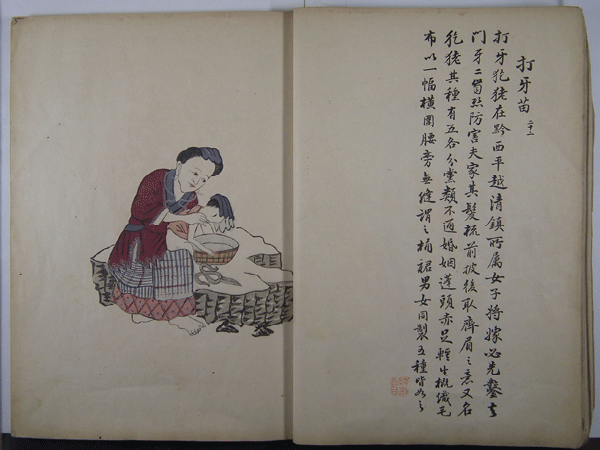 打牙苗 二十一
打牙犵狫在黔西平越清鎮所屬女子將嫁必先鑿去
門牙二齒恐防害夫家其髮梳前披後取齊眉之意又名
犵狫其種有五各分黨類不通婚姻蓬頭赤足輕生概織毛
布以一幅橫圍腰旁無縫謂之桶裙男女同製五種皆如之